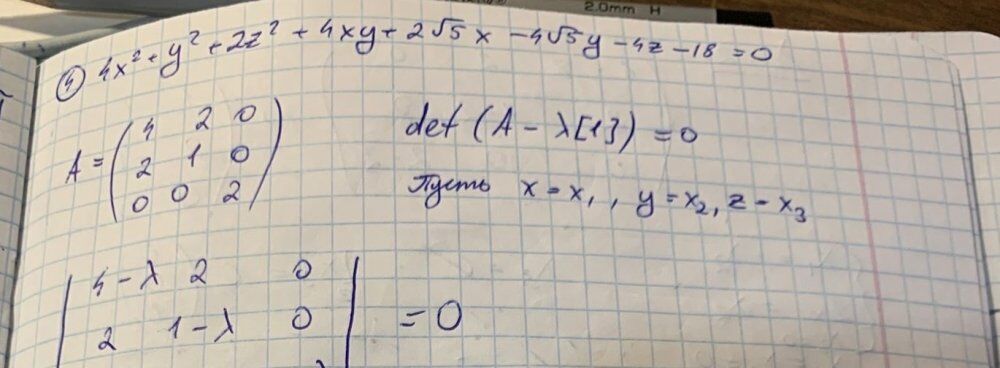 2.0mm H
④ 4x² + y² + 2z² + 4xy + 2√5x - 4√5y - 4z - 18 = 0
A = ( 4 2 0 det (A - λ[1]) = 0
2 1 0
0 0 2 ) Пусть x = x₁, y = x₂, z = x₃
| 4-λ 2 0 |
| 2 1-λ 0 | = 0